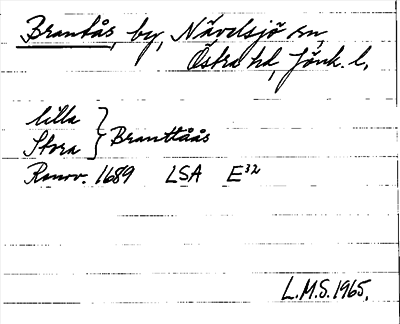 Brantås, by, Nävelsjö sn,
Östra hd, Jönk. l.
lilla
Stora } Branttåås
Renov. 1689 LSA E32
L.M.S. 1965.